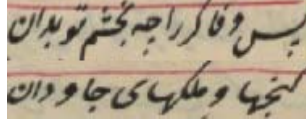 پس وفاگر را چه بخشم تو بدان
گنجها و ملکهای جاودان